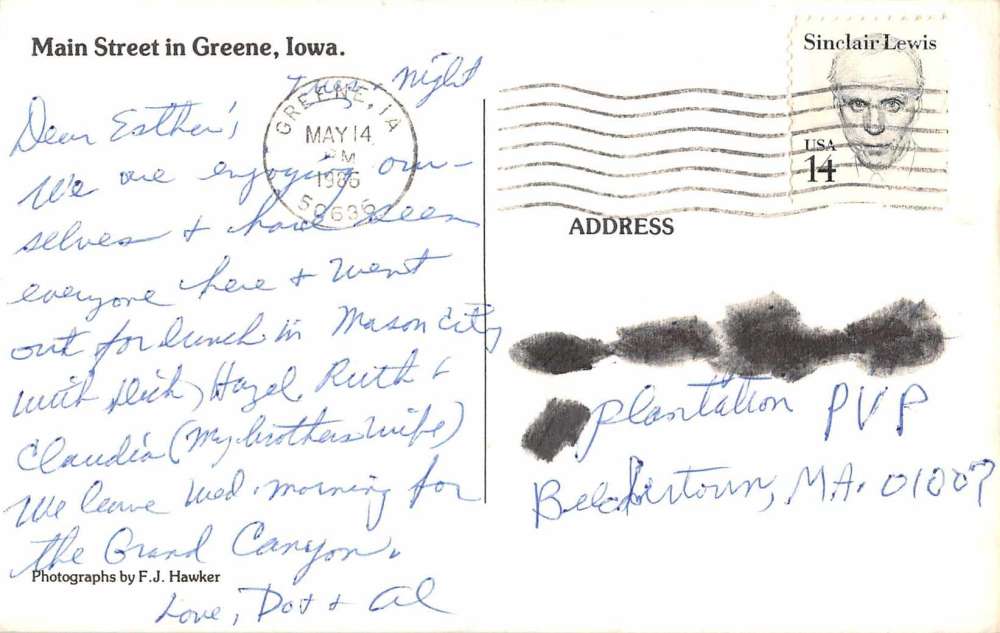 Main Street in Greene, Iowa.
Tues. Night
Dear Esther's,
We are enjoying our-
selves & have seen
everyone here & went
out for lunch in Mason City
with Dick, Hazel, Ruth &
Claudia (my brothers wife)
We leave Wed. morning for
the Grand Canyon.
Love, Dot & Al
Photographs by F.J. Hawker
GREENE, IA
MAY 14
PM
1986
50636
Sinclair Lewis
USA
14
ADDRESS
Plantation PVP
Belchertown, MA. 01007